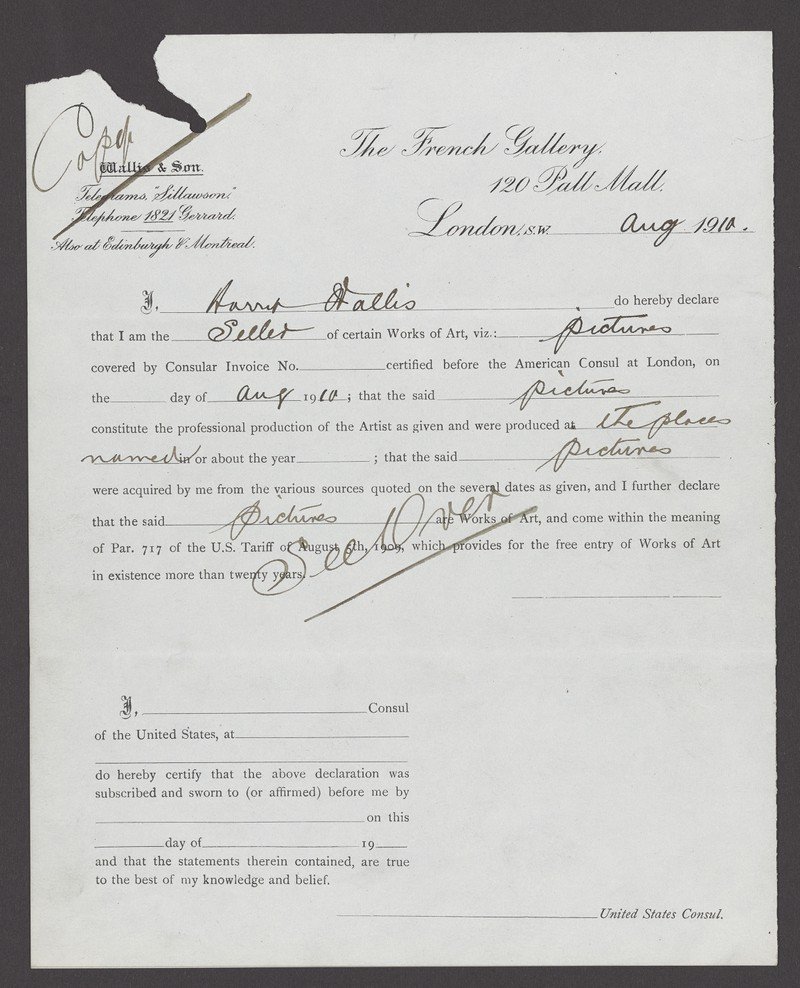 Copy
Wallis & Son.
Telegrams, "Sillawson."
Telephone 1821 Gerrard.
Also at Edinburgh & Montreal.
The French Gallery.
120 Pall Mall.
London, S.W. Aug 1910.
I, Harry Wallis do hereby declare
that I am the Seller of certain Works of Art, viz.: pictures
covered by Consular Invoice No. certified before the American Consul at London, on
the day of Aug 1910; that the said pictures
constitute the professional production of the Artist as given and were produced at the places
named in or about the year ; that the said pictures
were acquired by me from the various sources quoted on the several dates as given, and I further declare
that the said pictures are Works of Art, and come within the meaning
of Par. 717 of the U.S. Tariff of August 5th, 1909, which provides for the free entry of Works of Art
in existence more than twenty years.
See Over
I, Consul
of the United States, at
do hereby certify that the above declaration was
subscribed and sworn to (or affirmed) before me by
on this
day of 19
and that the statements therein contained, are true
to the best of my knowledge and belief.
United States Consul.